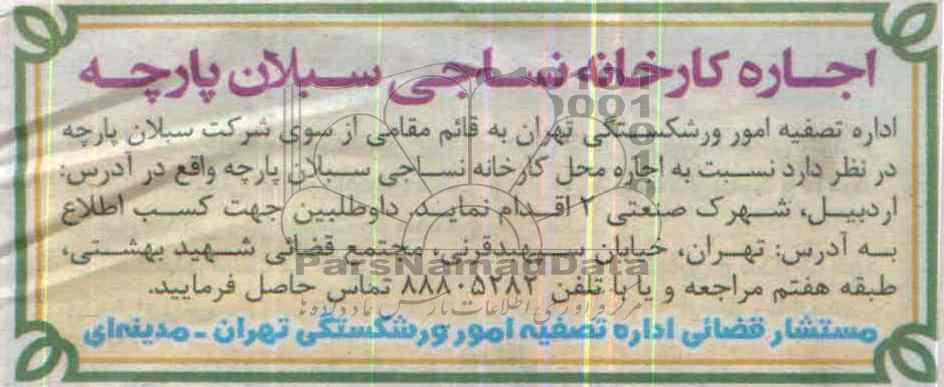 اجاره کارخانه نساجی سبلان پارچه
اداره تصفیه امور ورشکستگی تهران به قائم مقامی از سوی شرکت سبلان پارچه
در نظر دارد نسبت به اجاره محل کارخانه نساجی سبلان پارچه واقع در آدرس:
اردبیل، شهرک صنعتی ۲ اقدام نماید. داوطلبین جهت کسب اطلاع
به آدرس: تهران، خیابان سپهبدقرنی، مجتمع قضائی شهید بهشتی،
طبقه هفتم مراجعه و یا با تلفن ۸۸۸۰۵۲۸۲ تماس حاصل فرمایید.
مستشار قضائی اداره تصفیه امور ورشکستگی تهران ـ مدینه‌ای
ParsNamadData